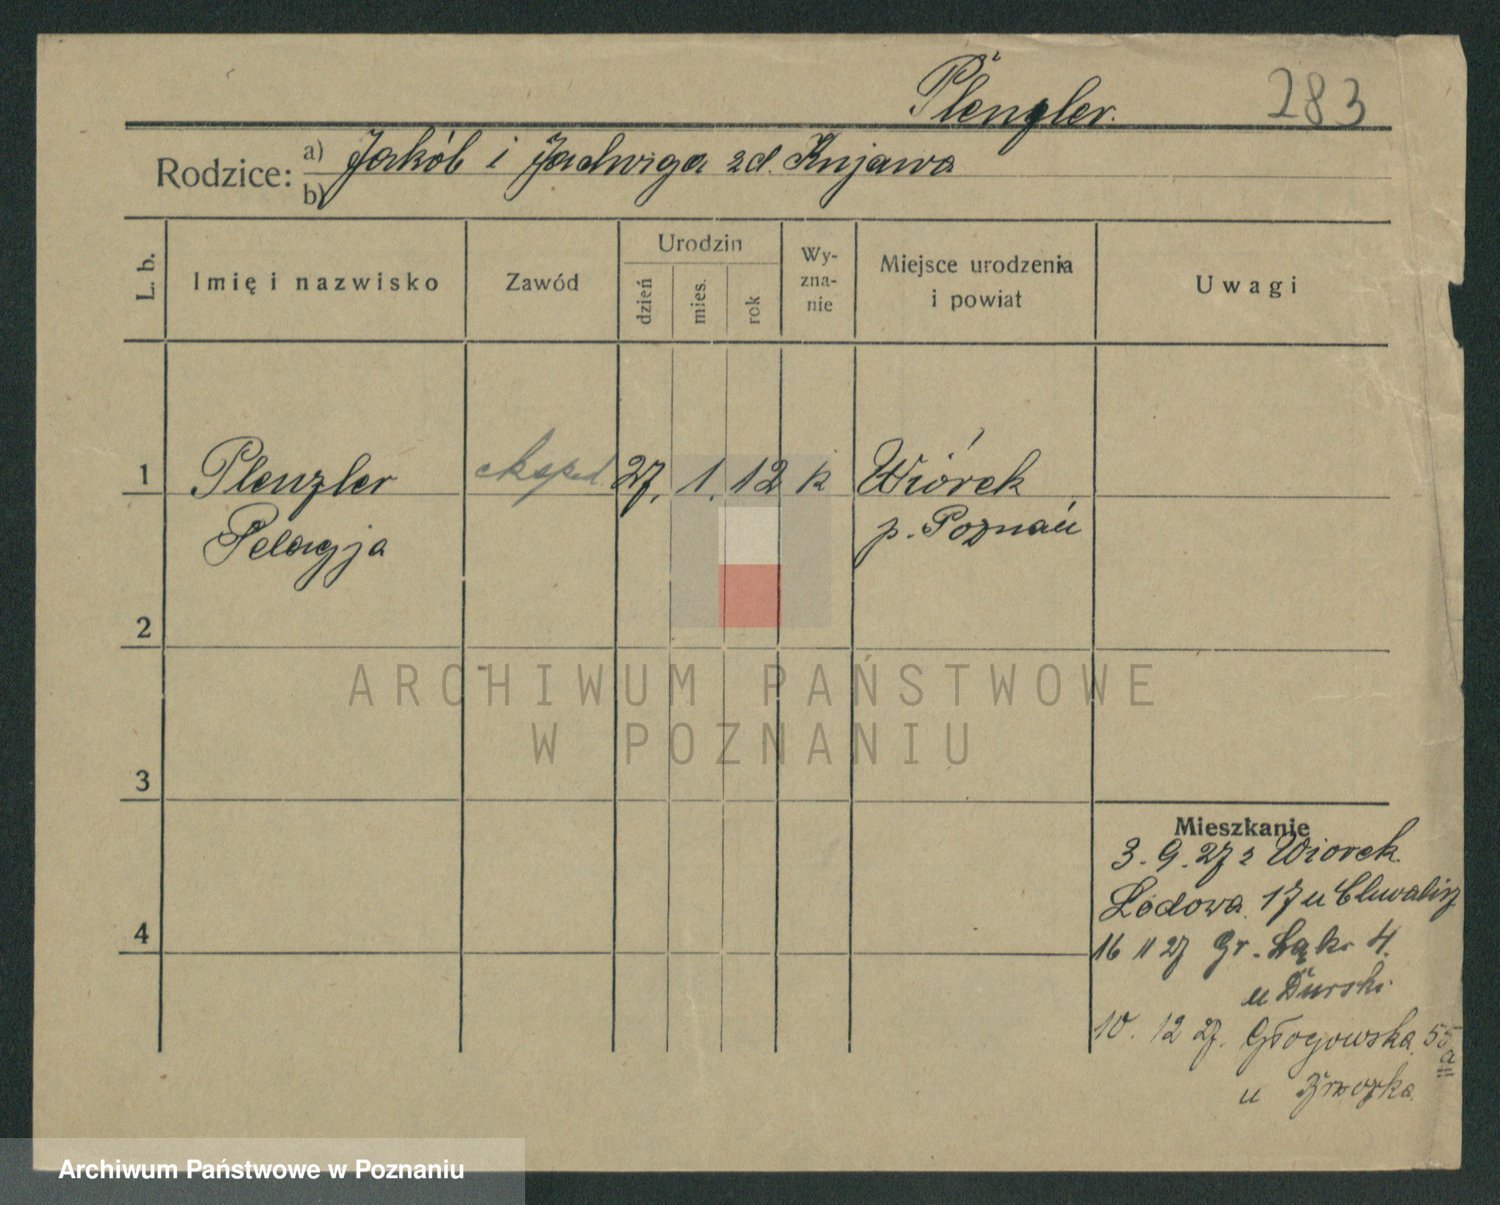 Plenzler.
283
Rodzice: a) Jakób i Jadwiga zd. Kujawa
b)
L. b.
Imię i nazwisko
Zawód
Urodzin
dzień
mies.
rok
Wy-
zna-
nie
Miejsce urodzenia
i powiat
Uwagi
1 Plenzler eksped. 27. 1. 12 k Wiórek
Pelagja p. Poznań
2
3
4
ARCHIWUM PAŃSTWOWE
W POZNANIU
Mieszkanie
3. 9. 27 z Wiorek
Lodowa 17 u
16 11 27 Gr. Łąki 4.
u Durski
10. 12 27. Głogowska 55
a
u
Archiwum Państwowe w Poznaniu